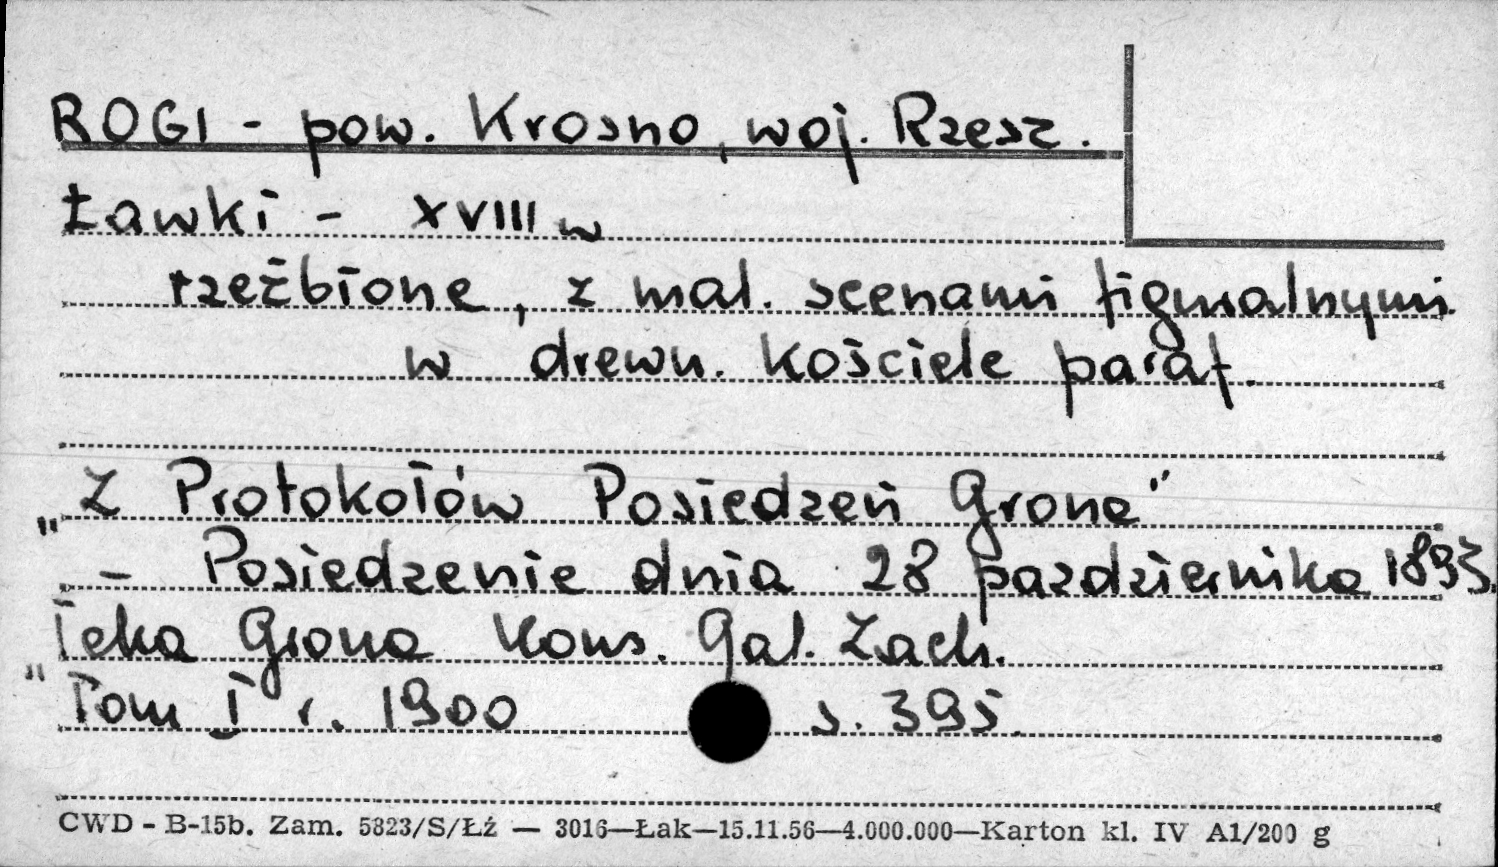 ROGI - pow. Krosno, woj. Rzesz.
Ławki - XVIII w
rzeźbione, z mal. scenami figuralnymi
w drewn. kościele paraf.
"Z Protokołów Posiedzeń Grona"
- Posiedzenie dnia 28 pazdziernika 1893.
"Teka Grona Kons. Gal. Zach.
Tom I r. 1900 s. 395.
CWD - B-15b. Zam. 5823/S/Łź — 3016—Łak—15.11.56—4.000.000—Karton kl. IV A1/200 g